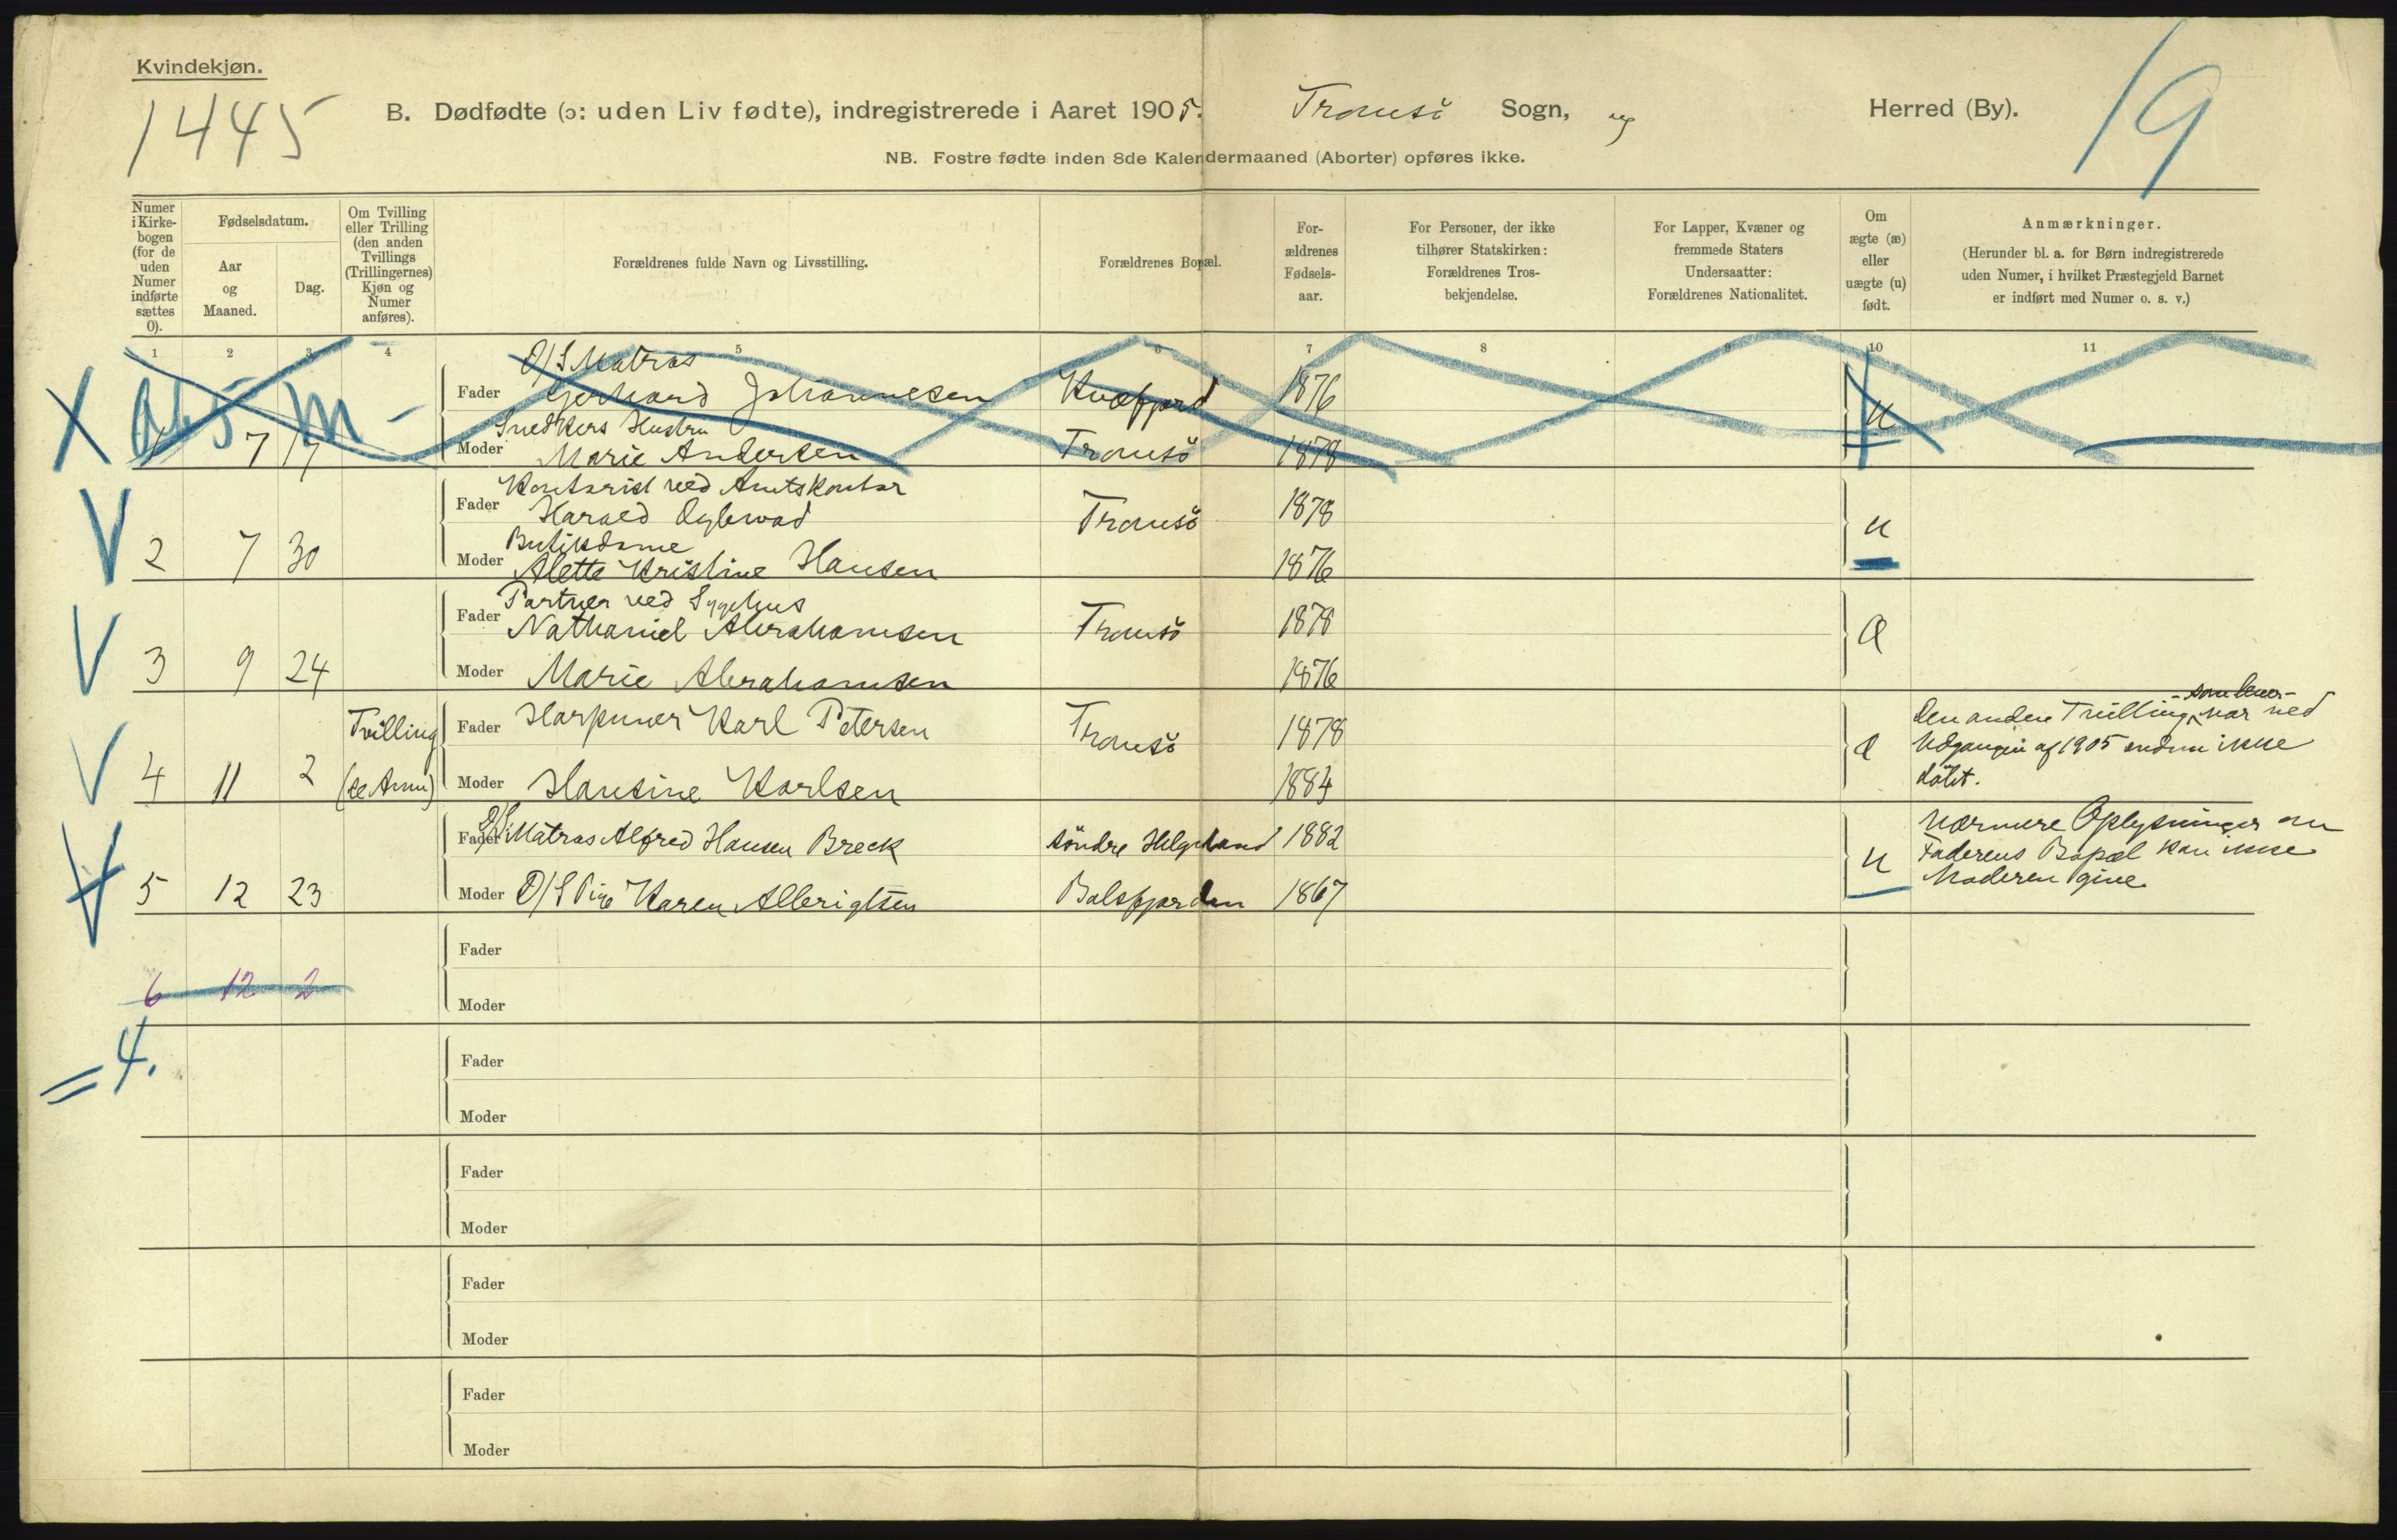 Kvindekjøn.
1445
B. Dødfødte (ɔ: uden Liv fødte), indregistrerede i Aaret 1905. Tromsö Sogn, og Herred (By).
19
NB. Fostre fødte inden 8de Kalendermaaned (Aborter) opføres ikke.
Numer i Kirke-bogen (for de uden Numer indførte sættes 0).
Fødselsdatum.
Aar og Maaned.
Dag.
Om Tvilling eller Trilling (den anden Tvillings (Trillingernes) Kjøn og Numer anføres).
Forældrenes fulde Navn og Livsstilling.
Forældrenes Bopæl.
For-ældrenes Fødsels-aar.
For Personer, der ikke tilhører Statskirken: Forældrenes Tros-bekjendelse.
For Lapper, Kvæner og fremmede Staters Undersaatter: Forældrenes Nationalitet.
Om ægte (æ) eller uægte (u) født.
Anmærkninger.
(Herunder bl. a. for Børn indregistrerede uden Numer, i hvilket Præstegjeld Barnet er indført med Numer o. s. v.)
1 2 3 4 5 6 7 8 9 10 11
X
O/S Matros
Fader Gerhard Johannesen Kvæfjord 1876
Snedkers Hustru
7 17 Moder Marie Andersen Tromsö 1878 u
V
Kontorist ved Amtskontor
Fader Harald Tromsö 1878
Butikdame
2 7 30 Moder Alette Kristine Hansen 1876 u
V
Portner ved Sygehus
Fader Nathaniel Abrahamsen Tromsö 1878
3 9 24 Moder Marie Abrahamsen 1876 Æ
V
Tvilling Fader Harpuner Karl Petersen Tromsö 1878
4 11 2 (se Anm) Moder Hansine Karlsen 1884 Æ
Den anden Tvilling, - som lever - var ved
Udgangen af 1905 endnu ikke
döbt.
V
Fader O/S Matros Alfred Hansen Breck söndre Helgeland 1882
5 12 23 Moder O/S Pige Karen Albrigtsen Balsfjorden 1867 u
Nærmere Oplysninger om
Faderens Bopæl kan ikke
Moderen give.
Fader
6 12 2
Moder
= 4.
Fader
Moder
Fader
Moder
Fader
Moder
Fader
Moder